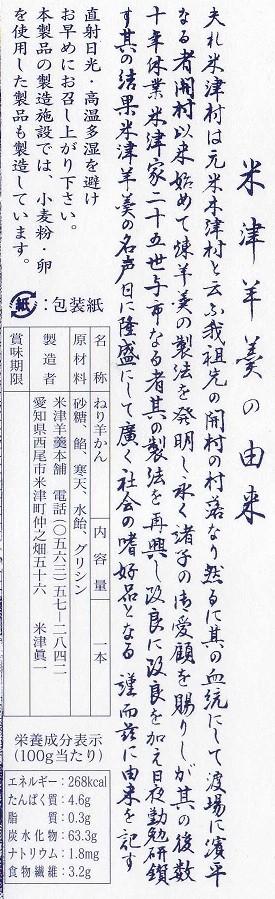 米津羊羹の由来
夫れ米津村は元米木津村と云ふ我祖先の開村の村落なり然るに其の血統にして渡場に濱平
なる者開村以来始めて煉羊羹の製法を発明し永く諸子の御愛顧を賜りしが其の後数
十年休業米津家二十五世子市なる者其の製法を再興し改良に改良を加え日夜勤勉研鑽
す其の結果米津羊羹の名声日に隆盛にして廣く社会の嗜好品となる 謹而茲に由来を記す
直射日光・高温多湿を避け
お早めにお召し上がり下さい。
本製品の製造施設では、小麦粉・卵
を使用した製品も製造しています。
紙:包装紙
名称 ねり羊かん 内容量 一本
原材料 砂糖、餡、寒天、水飴、グリシン
製造者 米津羊羹本舗 電話(〇五六三)五七―二八四二
愛知県西尾市米津町仲之畑五十六 米津眞一
賞味期限
栄養成分表示
(100g当たり)
エネルギー:268kcal
たんぱく質:4.6g
脂質:0.3g
炭水化物:63.3g
ナトリウム:1.8mg
食物繊維:3.2g